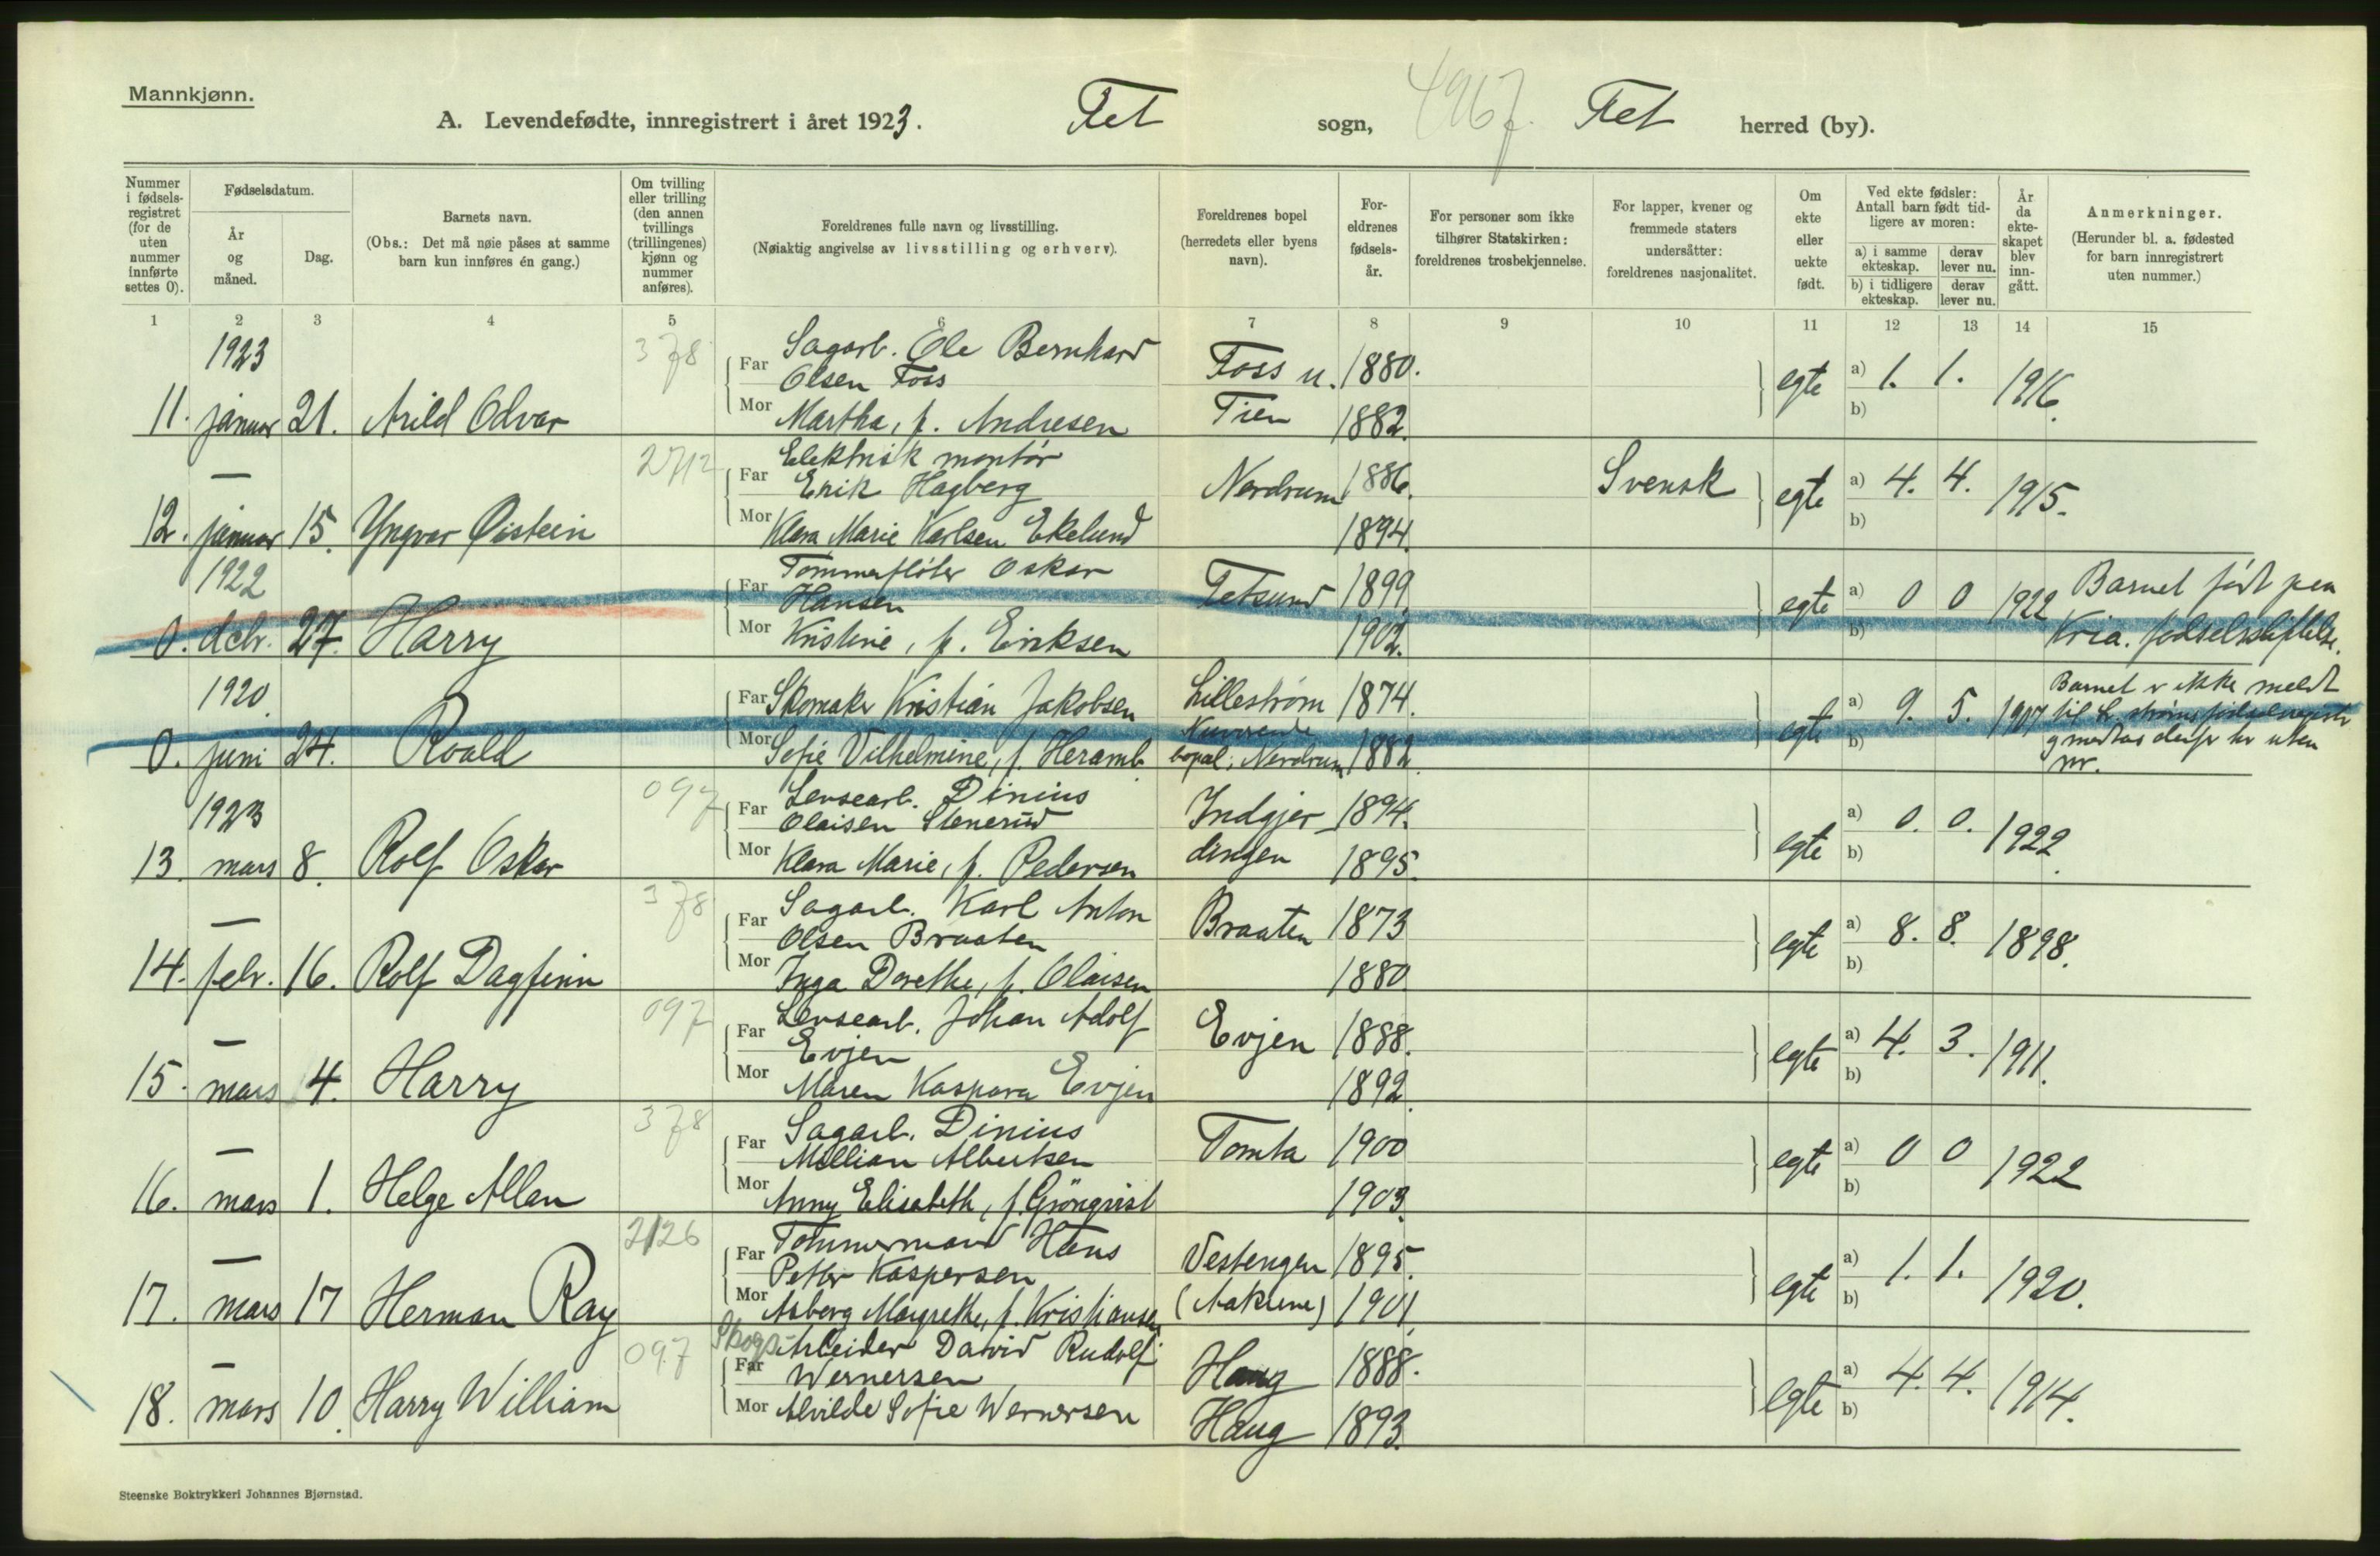 Mannkjønn.
A. Levendefødte, innregistrert i året 1923. Fet sogn, Fet herred (by).
Nummer i fødsels-registret (for de uten nummer innførte settes 0).
Fødselsdatum.
År og måned.
Dag.
Barnets navn.
(Obs.: Det må nøie påses at samme barn kun innføres én gang.)
Om tvilling eller trilling (den annen tvillings (trillingenes) kjønn og nummer anføres).
Foreldrenes fulle navn og livsstilling.
(Nøiaktig angivelse av livsstilling og erhverv).
Foreldrenes bopel (herredets eller byens navn).
For-eldrenes fødsels-år.
For personer som ikke tilhører Statskirken: foreldrenes trosbekjennelse.
For lapper, kvener og fremmede staters undersåtter: foreldrenes nasjonalitet.
Om ekte eller uekte født.
Ved ekte fødsler: Antall barn født tid-ligere av moren:
a) i samme ekteskap.
derav lever nu.
b) i tidligere ekteskap.
derav lever nu.
År da ekte-skapet blev inn-gått.
Anmerkninger.
(Herunder bl. a. fødested for barn innregistrert uten nummer.)
1 2 3 4 5 6 7 8 9 10 11 12 13 14 15
1923 378 Far Sagarb. Ole Bernhard Olsen Foss Foss u. 1880.
11. januar 21. Arild Odvar Mor Martha, f. Andresen Tien 1882. egte a) 1. 1. b) 1916.
— 2712 Far Elektrisk montør Erik Hagberg Nerdrum 1886. Svensk
12. januar 15. Yngvar Øistein Mor Klara Marie Karlsen Ekelund 1894. egte a) 4. 4. b) 1915.
1922 Far Tømmerfløter Oskar Hansen Fetsund 1899.
0. debr. 27. Harry Mor Kristine, f. Eriksen 1902. egte a) 0 0 b) 1922 Barnet født paa Kria. fødselsstiftelse.
1920. Far Skomaker Kristian Jakobsen Lillestrøm 1874.
0. juni 24. Roald Mor Sofie Vilhelmine, f. Heramb Nuværende bopæl: Nerdrum 1882. egte a) 9. 5. b) 1907 Barnet er ikke meldt til L.strøms fødselsregister
nr.
1923 097 Far Lensearb. Dinius Olaisen Stenerud Indgjer- 1894.
13. mars 8. Rolf Oskar Mor Klara Marie, f. Pedersen dingen 1895. egte a) 0. 0. b) 1922.
— 378 Far Sagarb. Karl Anton Olsen Braaten Braaten 1873
14. febr. 16. Rolf Dagfinn Mor Inga Dorethe, f. Olaisen 1880. egte a) 8. 8. b) 1898.
— 097 Far Lensearb. Johan Adolf Evjen Evjen 1888.
15. mars 4. Harry Mor Maren Kaspara Evjen 1892. egte a) 4. 3. b) 1911.
— 378 Far Sagarb. Dinius Millian Albertsen Tomta 1900
16. mars 1. Helge Allan Mor Anny Elisabeth, f. Grönqvist 1903. egte a) 0 0 b) 1922
— 2126 Far Tømmermand Hans Petter Kaspersen Vestengen 1895.
17. mars 17 Herman Ray Mor Asberg Margrethe, f. Kristiansen 1901. egte a) 1. 1. b) 1920.
— 097 Far Skogs-Arbeider David Rudolf Wernersen Haug 1888.
18. mars 10. Harry William Mor Alvilde Sofie Wernersen Haug 1893. egte a) 4. 4. b) 1914.
Steenske Boktrykkeri Johannes Bjørnstad.